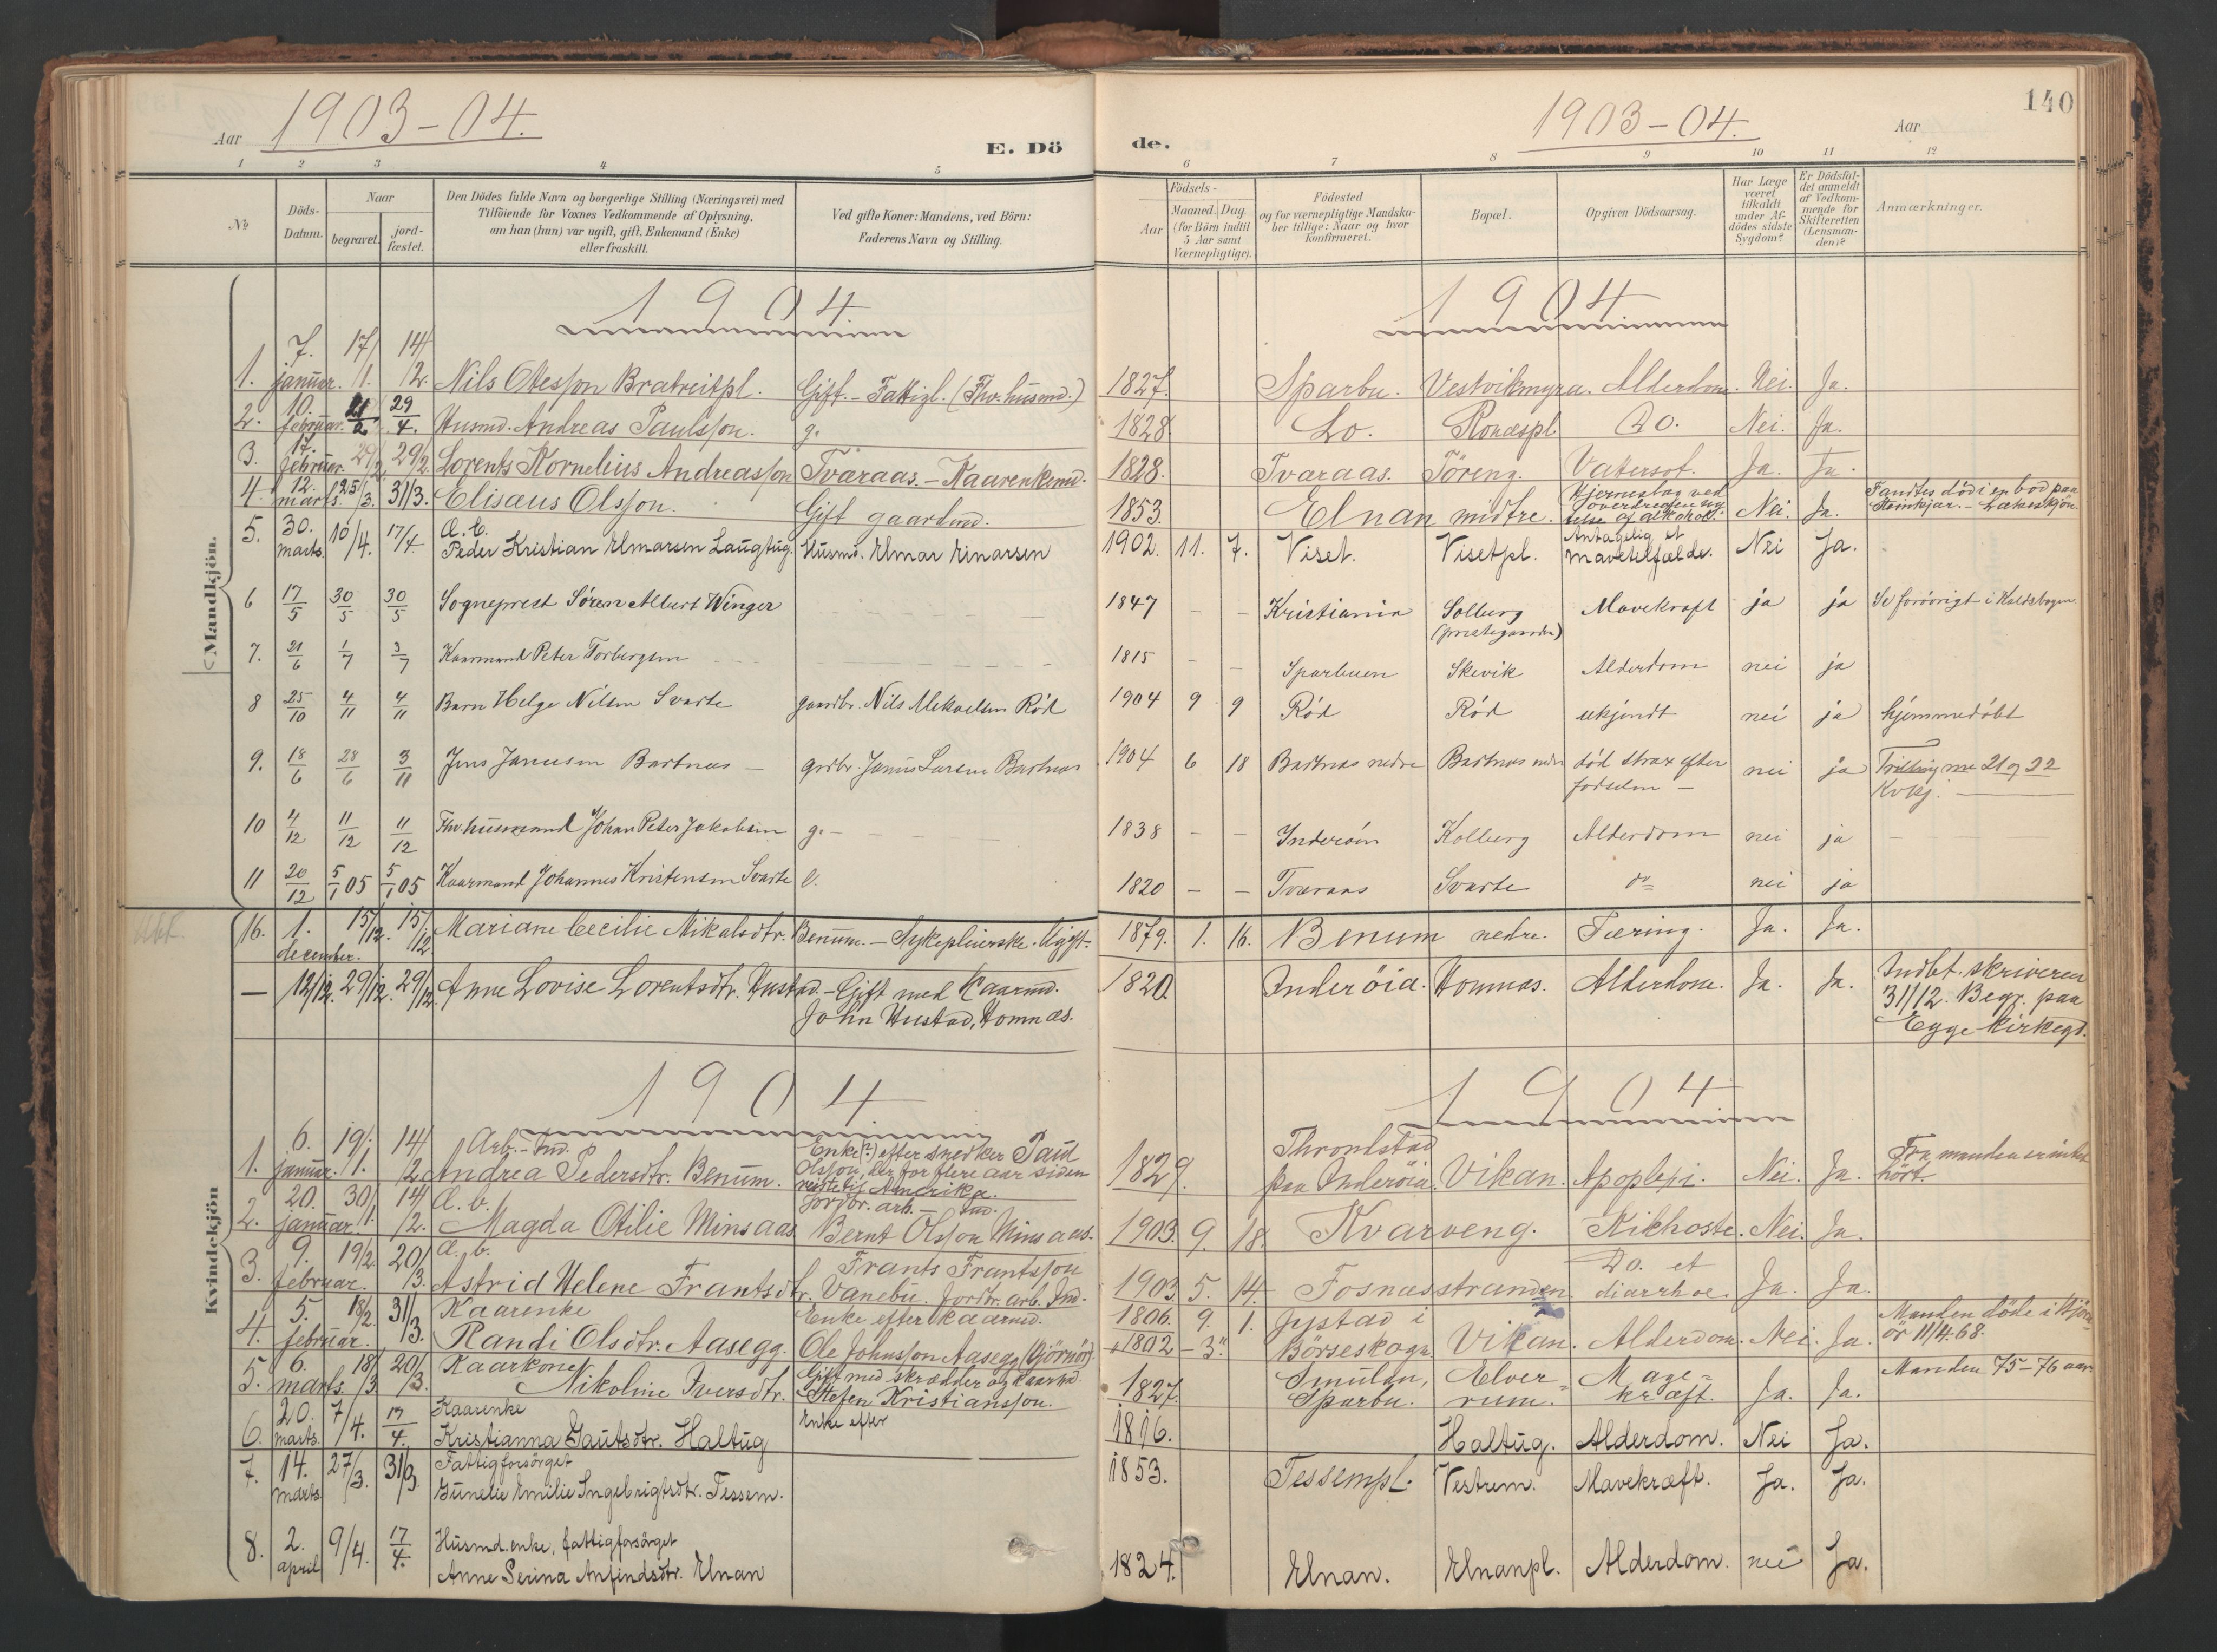 140
Aar 1903-04.
E. Dö de.
1903-04. Aar
1 2 3 4 5 6 7 8 9 10 11 12
№
Döds-Datum.
Naar
begravet.
jord-fæstet.
Den Dödes fulde Navn og borgerlige Stilling (Næringsvei) med
Tilföiende for Voxnes Vedkommende af Oplysning,
om han (hun) var ugift, gift, Enkemand (Enke)
eller fraskilt.
Ved gifte Koner: Mandens, ved Börn:
Faderens Navn og Stilling.
Födsels-
Aar
Maaned. Dag.
(for Börn indtil
5 Aar samt
Værnepligtige).
Födested
og for værnepligtige Mandska-
ber tillige: Naar og hvor
konfirmeret.
Bopæl.
Opgiven Dödsaarsag.
Har Læge
været
tilkaldt
under Af-
dödes sidste
Sygdom?
Er Dödsfal-
det anmeldt
af Vedkom-
mende for
Skifteretten
(Lensman-
den)?
Anmærkninger.
Mandkjön.
1904 1904
1. 7. januar. 17/1. 14/2. Nils Olesson Bratreitpl. Gift.- Fattigl. (Fhv. husmd.) 1827. Sparbu. Vestvikmyra. Alderdom. Nei. Ja.
2. 10. februar. 21/2 29/4. Husmd. Andreas Paulsson. g. 1828. Do. Do. Nei. Ja.
3. 17. februar. 29/2 29/2. Lorents Kornelius Andreasson Tværaas.- Kaarenkemd. 1828. Tværaas. Töreng. Vatersot. Ja. Ja.
4. 12. marts. 25/3. 31/3. Elisæus Olsson. Gift gaardmd. 1853. Elnan midtre. Hjerneslag ved overdreven ny-telse af alkohol. Nei. Ja. Fandtes död i en bod paa Steinkjær.-
5. 30. marts. 10/4. 17/4 Peder Kristian Elmarsen Laugtug. Husmd. Elmar Einarsen 1902. 11. 7. Viset. Visetpl. Antagelig et mavetilfælde. Nei Ja.
6 17/5 30/5 30/5 Sogneprest Sören Albert Winger 1847 - - Kristiania Solberg (prestegaarden) Mavekræft ja ja Se forövrigt i Kaldsbogen.
7. 21/6 1/7 3/7 Kaarmand Peter Torbergsen 1815 - - Sparbuen Skevik Alderdom nei ja
8 25/10 4/11 4/11 Barn Helge Nilsen Svarte gaardbr. Nils Mikaelsen Röd 1904 9 9 Röd Röd ukjendt nei ja hjemmedöbt
9. 18/6 28/6 3/11 Jens Janusen Bartnæs - grdbr. Janus Larsen Bartnæs 1904 6 18 Bartnæs nedre Bartnæs nedre död strax efter födselen - nei ja Trilling me 21 og 22 Kvkj.
10 4/12 11/12 11/12 Fhv. husmand Johan Peter Jakobsen g. - 1838 - - Inderöen Kolberg Alderdom nei ja
11 20/12 5/1 05 5/1 05 Kaarmand Johannes Kristensen Svarte e. 1820 - - Tværaas Svarte do nei ja
16. 1. december. 15/12. 15/12 Mariane Cecilie Mikalsdtr. Benum.- Sykepleierske. Ugift. 1879. 1. 16. Benum nedre. Tæring. Ja. Ja.
- 12/12. 29/12. 29/12. Anne Lovise Lorentsdtr. Hustad.- Gift med Kaarmd. John Hustad, Homnæs. 1820. Inderöia. Homnæs. Alderdom. Ja. Ja. Indbt. skriveren 31/12. Begr. paa Egge kirkegd.
Kvindekjön
1904 1904
1. 6. januar. 19/1. 14/2 Arb.-Ind. Andrea Pedersdtr. Benum. Enke (?) efter snedker Paul Olsson, der for flere aar siden reiste til Amerika. 1829. Throndstad paa Inderöia. Vikan. Apoplexi. Nei. Ja. Fra manden er intet hört.
2. 20. januar. 30/1. 14/2. Æ. b. Magda Otilie Minsaas Jordbr. arb. - Ind. Bernt Olsson Minsaas. 1903. 9. 18. Kvarveng. Kikhoste. Nei. Ja.
3. 9. februar. 19/2. 20/3. Æ. b. Astrid Helene Frantsdtr. Frants Frantsson Vanebu. Jordbr. arb. Ind. 1903. 5. 14. Fosnæsstranden. Do. et diarrhoe. Ja. Ja.
4. 5. februar. 18/2. 31/3. Kaarenke Randi Olsdtr. Aasegg. Enke efter kaarmd. Ole Johnsson Aasegg (Hjörnör). 1806. 9. 1. 1802 - 3. Jystad i Börseskogn. Vikan. Alderdom. Nei. Ja. Manden döde i Hjörn-ör 11/4.68.
5. 6. marts. 18/3 20/3. Kaarkone Nikoline Iversdtr. Gift med skrædder og kaarmd. Stefen Kristiansson. 1827. Smulan, Sparbu. Elver-rum. Mage-kræft. Ja. Ja. Manden 75-76 aar.
6. 20. marts. 7/4. 17/4. Kaarenke Kristianna Gautsdtr. Haltug Enke efter 1816. Haltug. Alderdom. Nei Ja.
7. 14. marts 27/3. 31/3. Fattigforsörget Gunelie Emilie Ingebrigtsdtr. Tessem. 1853. Tessempl. Vestrem. Mavekræft. Ja. Ja.
8. 2. april 9/4. 17/4. Husmd.enke, fattigforsörget Anne Serina Anfindsdtr. Elnan 1824. Elnan. Elnanpl. Alderdom. nei Ja.